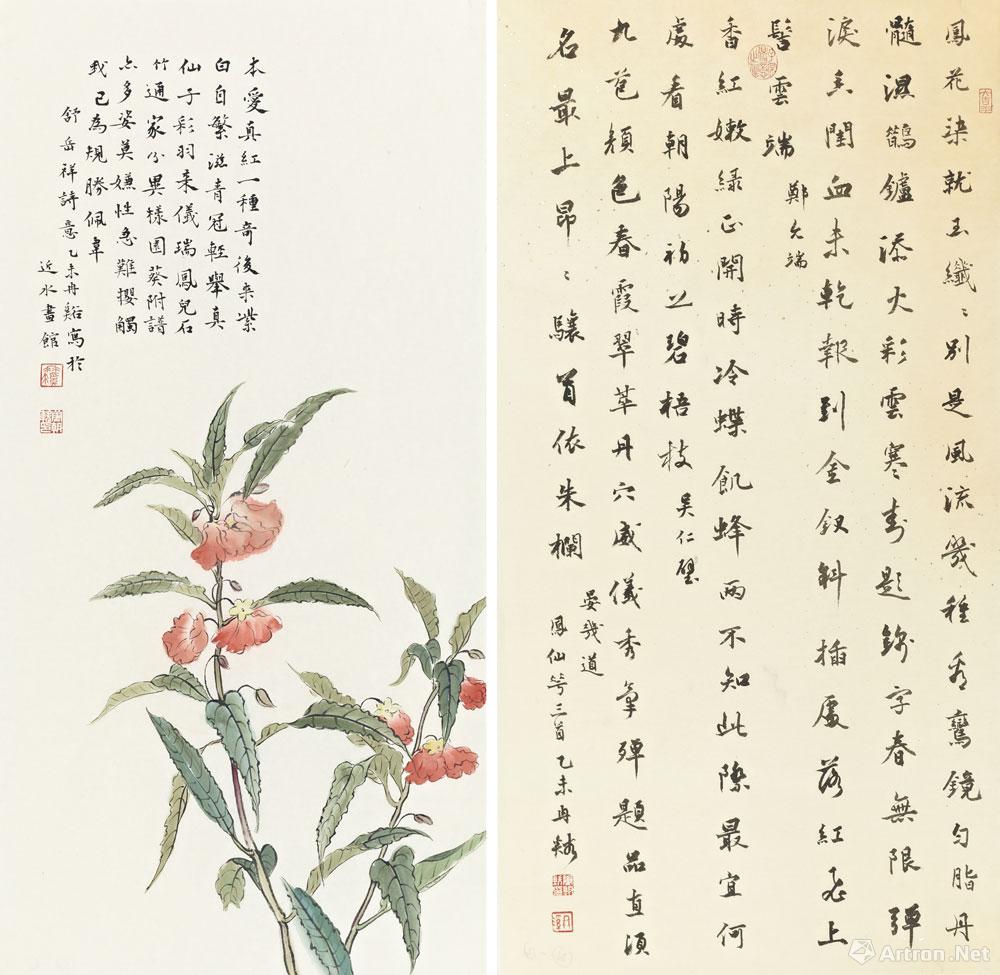 鳳花染就玉纖〻別是風流幾種看鸞鏡勻脂丹
髓濕鵲鑪添火彩雲寒書題錦字春無限彈
淚空閨血未乾報到金釵斜插處落紅飛上
髻雲端 鄭允端
香紅嫩綠正開時冷蝶飢蜂兩不知此際最宜何
處看朝陽初上碧梧枝 吳仁璧
九苞顏色春霞翠萃丹穴威儀秀氣殫題品直須
名最上昂〻驤首依朱欄 晏幾道
鳳仙等三首 乙未冉谿
本愛真紅一種奇後來紫
白自繁滋青冠輕舉真
仙子彩羽來儀瑞鳳兒石
竹通家分異樣園葵附譜
亦多姿莫嫌性急難攖觸
我已為規勝佩韋
舒岳祥詩意乙未冉谿寫於
近水畫館
Artron.Net